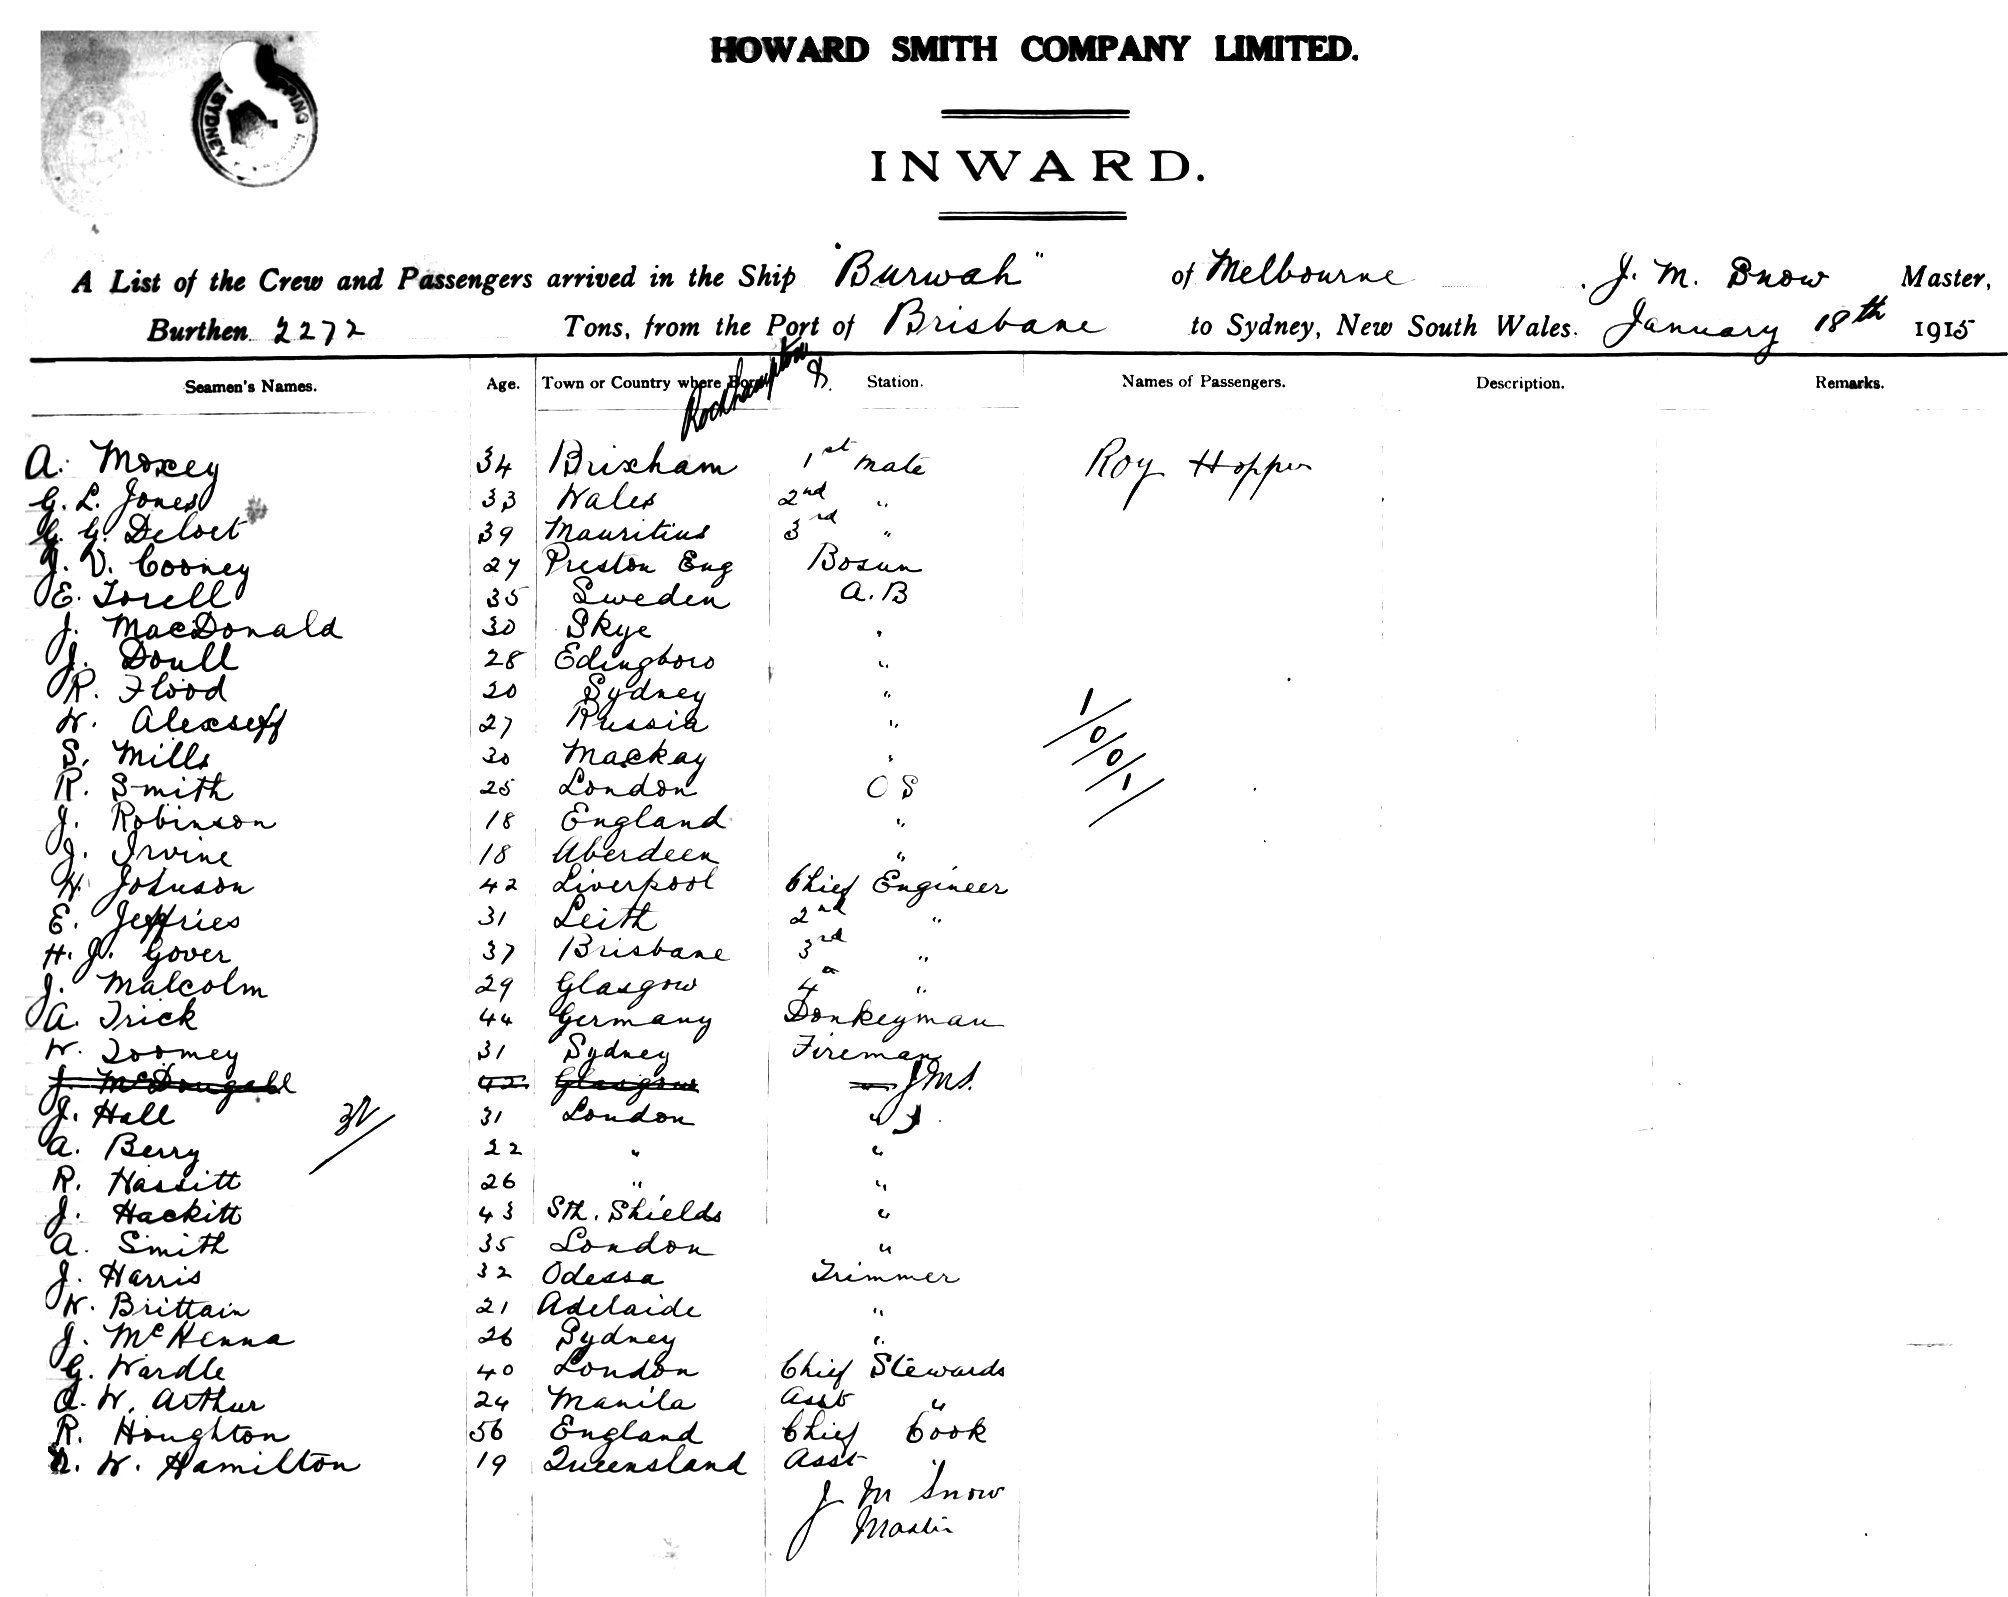 HOWARD SMITH COMPANY LIMITED.
INWARD.
A List of the Crew and Passengers arrived in the Ship "Burwah" of Melbourne, J. M. Snow Master,
Burthen 2272 Tons, from the Port of Rockhampton & Brisbane to Sydney, New South Wales. January 18th 1915
Seamen's Names. Age. Town or Country where Born Station. Names of Passengers. Description. Remarks.
A. Moxey 34 Brixham 1st mate Roy Hopper
G. L. Jones 33 Wales 2nd "
G. Deloet 39 Mauritius 3rd "
J. V. Cooney 27 Preston Eng Bosun
E. Torell 35 Sweden A.B
J. MacDonald 30 Skye "
J. Doull 28 Edingboro "
R. Flood 20 Sydney "
W. Alexseff 27 Russia "
S. Mills 30 Mackay "
R. Smith 25 London OS
J. Robinson 18 England "
J. Irvine 18 Aberdeen "
W. Johnson 42 Liverpool Chief Engineer
E. Jeffries 31 Leith 2nd "
H. J. Gover 37 Brisbane 3rd "
J. Malcolm 29 Glasgow 4th "
A. Trick 44 Germany Donkeyman
W. Toomey 31 Sydney Fireman
J. McDougall 42 Glasgow " JMS.
J. Hall 31 London "
A. Berry 22 " "
R. Hassitt 26 " "
J. Hackitt 43 Sth. Shields "
A. Smith 35 London "
J. Harris 32 Odessa Trimmer
W. Brittain 21 Adelaide "
J. McKenna 26 Sydney "
G. Wardle 40 London Chief Stewards
A. W. Arthur 24 Manila Asst "
R. Houghton 56 England Chief Cook
W. Hamilton 19 Queensland Asst "
J M Snow
Master
1/0/0/1/
SYDNEY